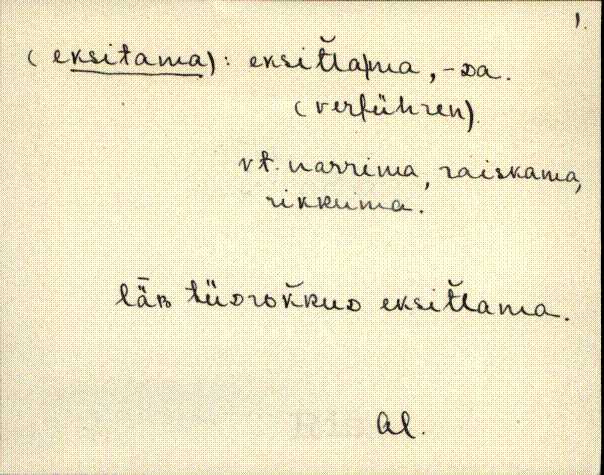 1.
(eksitama): eksit̆t̆ama, -ᴅa.
(verführen).
vt. narrima, raiskama,
rikkuma.
lǟʙ tüᴅrok̆kuᴅ eksit̆t̆ama.